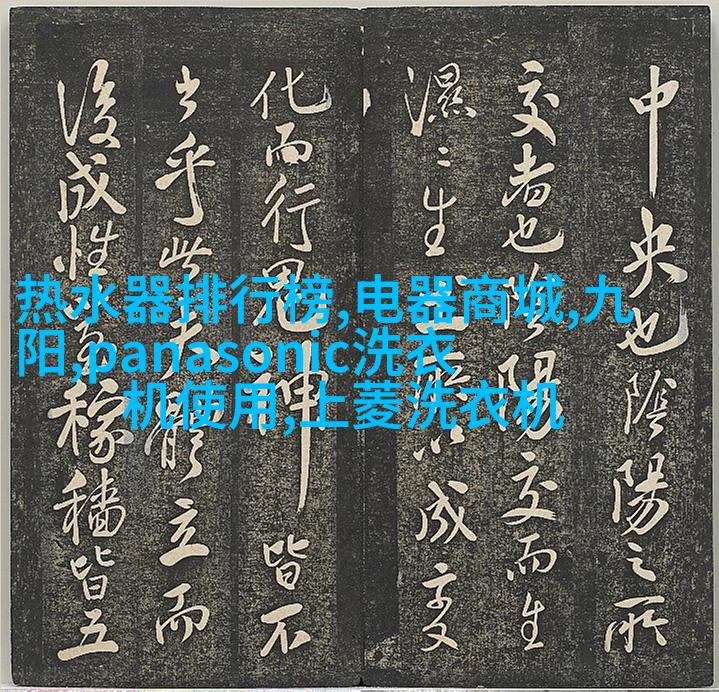 中央也陰陽之所
交者也陰陽交而生
濕二生
成变
化而行鬼神皆不
乎此夫體立而
後成性
稼穡皆五
热水器排行榜,电器商城,九
阳,panasonic洗衣
机使用,上菱洗衣机